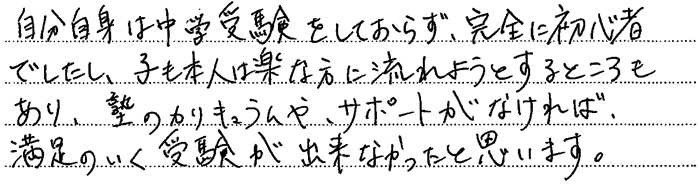 自分自身は中学受験をしておらず、完全に初心者
でしたし、子ども本人は楽な方に流れようとするところも
あり、塾のカリキュラムや、サポートがなければ、
満足のいく受験が出来なかったと思います。